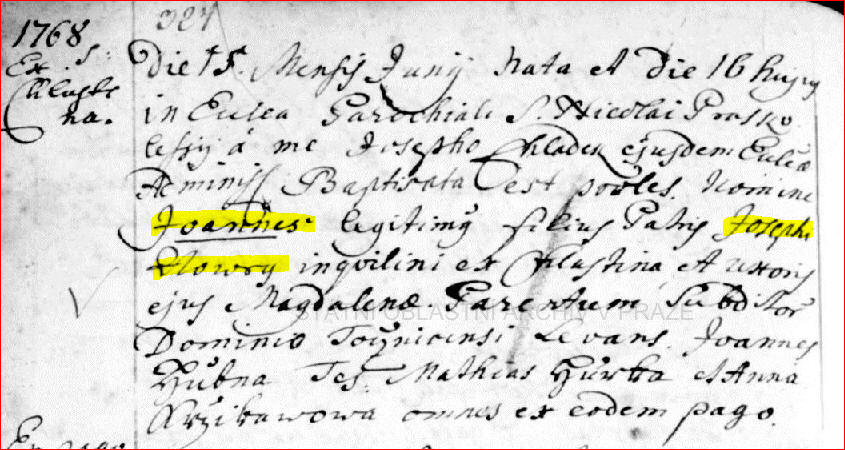 324
1768
Ex S:
Chlasti
na.
Die 15. Mensis Junÿ Nata et Die 16 hujus
in Eccla Parochiali S. Nicolai Prasko
lessÿ á me Josepho Chladek ejusdem Eccliæ
Adminis Baptisata est proles. Nomine
Joannes legitimÿ filius Patris Josephi
inqvilini ex Chlastina, et uxoris
ejus Magdalenæ. Parentum Subditor
Dominio Tocznicensi Levans. Joannes
Hubna Tes. Mathias Hurka et Anna
Krzikawowa omnes ex eodem pago.
STÁTNÍ OBLASTNÍ ARCHIV V PRAZE